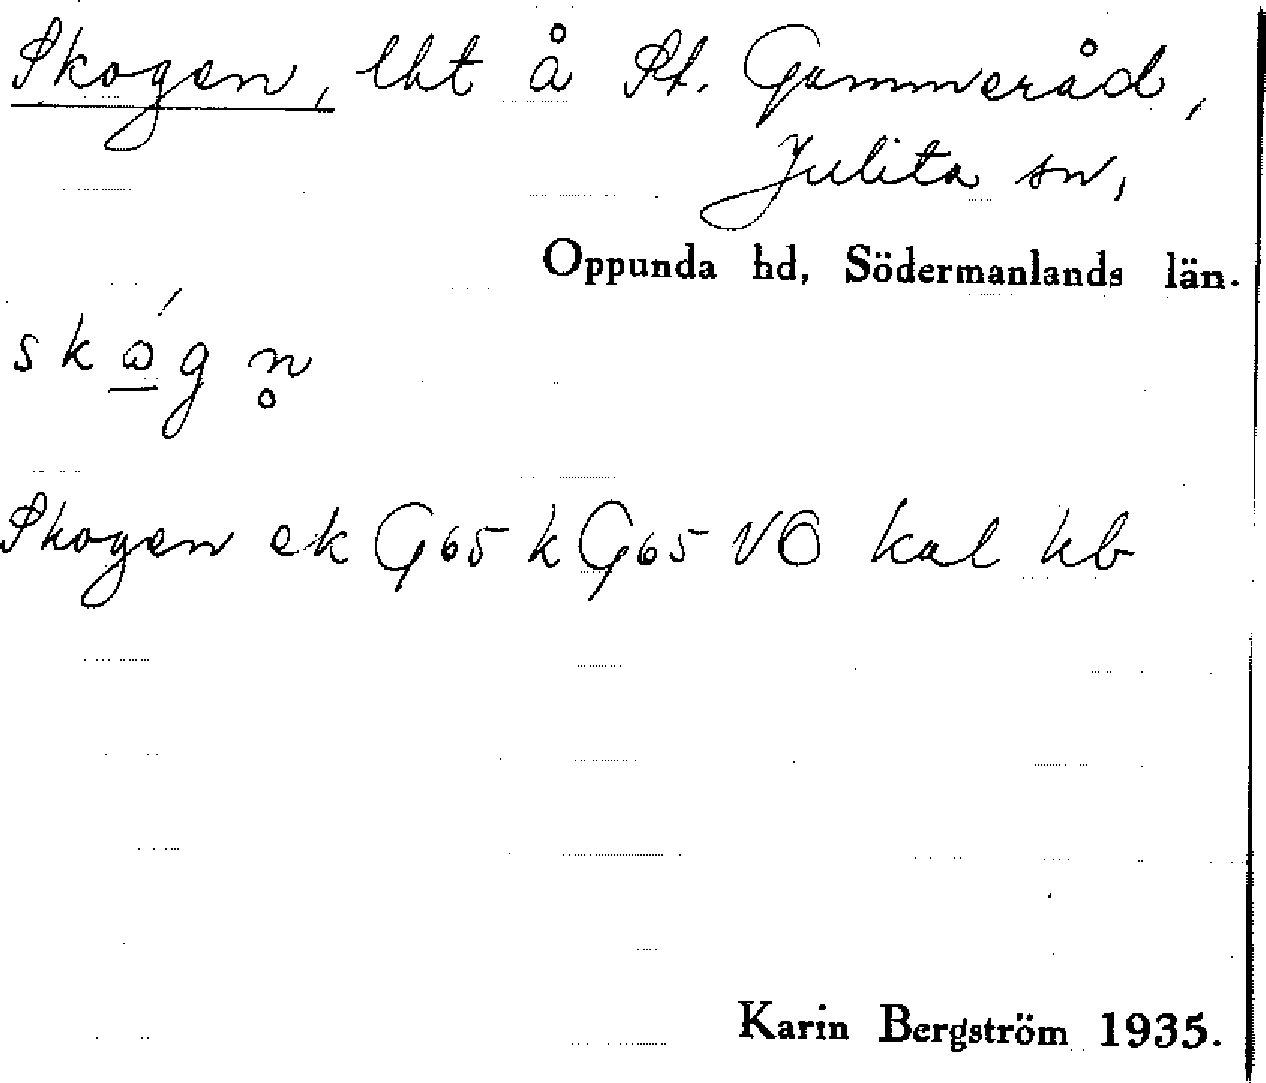 Skogen, lht å St. Gammeråd,
Julita sn,
Oppunda hd, Södermanlands län.
Skogen ek G65 k G65 VO kal hb
Karin Bergström 1935.